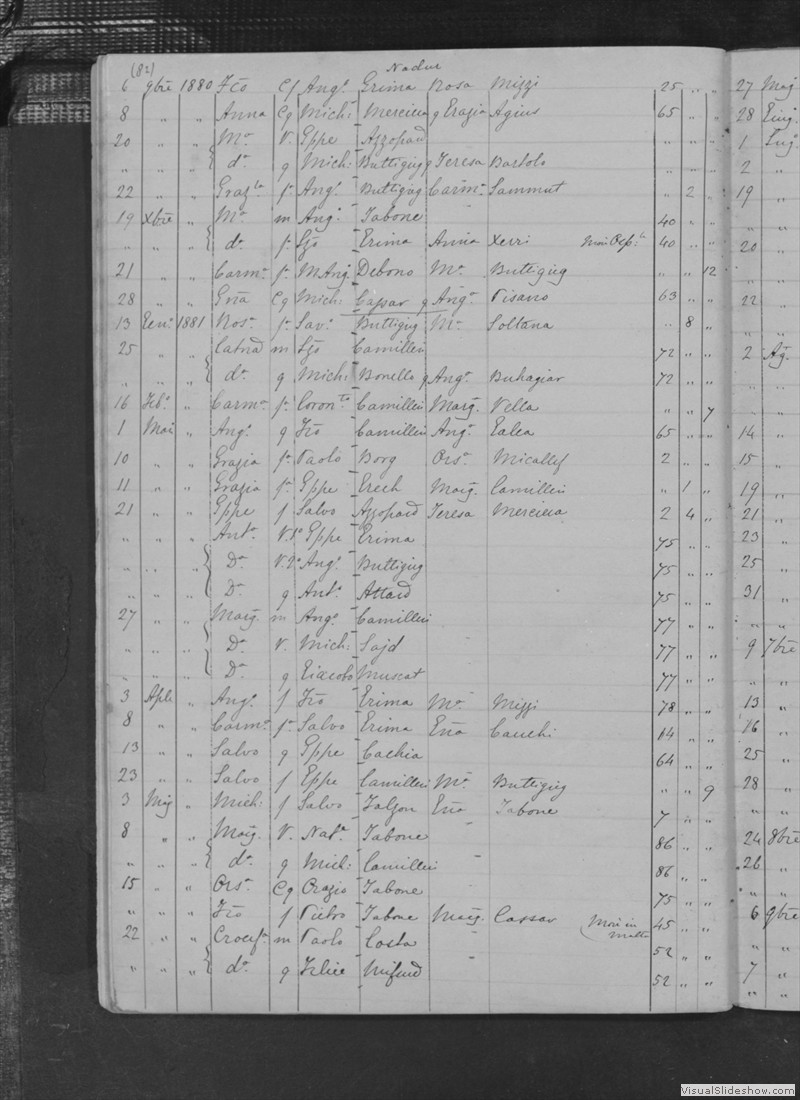 (82)
Nadur
6 9bre 1880 Fco Cf Angº Grima Rosa Mizzi 25 „ „ 27 Mag
8 „ „ Anna Cg Mich: Mercieca g Grazia Agius 65 „ „ 28
20 „ „ Mª V. Gppe Azzopard „ „ „ 1
„ „ „ dª g Mich: Buttigieg g Teresa Bartolo „ „ „ 2 „
22 „ „ Grazla fª Angº Buttigieg Carmª Sammut „ 2 „ 19 „
19 Xbre „ Mª m Angº Tabone 40 „ „ „ „
„ „ „ dª fª Lzo Grima Anna Xerri 40 „ „ 20 „
21 „ „ Carmª fª M Angº Debono Mª Buttigieg „ „ 12 „ „
28 „ „ Gña Cg Mich: Cassar g Angª Pisano 63 „ „ 22 „
13 Genº 1881 Rosª fª Savº Buttigieg Mª Soltana „ 8 „ „ „
25 „ „ Catnª m Lzo Camilleri 72 „ „ 2 Ag.
„ „ „ dª g Mich: Bonello g Angª Buhagiar 72 „ „ „ „
16 Febº „ Carmª fª Coronto Camilleri Marg. Vella „ „ 7 „ „
1 Mar „ Angª g Fco Camilleri Angª Galea 65 „ „ 14 „
10 „ „ Grazia fª Paolo Borg Orsª Micallef 2 „ „ 15 „
11 „ „ Grazia fª Gppe Grech Marg. Camilleri „ 1 „ 19 „
21 „ „ Gppe f Salvo Azzopard Teresa Mercieca 2 4 „ 21 „
„ „ „ Antª V.1º Gppe Grima 75 „ „ 23 „
„ „ „ Dª V.2º Angº Buttigieg 75 „ „ 25 „
„ „ „ Dª g Antº Attard 75 „ „ 31 „
27 „ „ Marg. m Angº Camilleri 77 „ „ „ „
„ „ „ Dª V. Mich: Sajd 77 „ „ 9 7bre
„ „ „ Dª g Giacobo Muscat 77 „ „ „ „
3 Aple „ Angº f Fco Grima Mª Mizzi 78 „ „ 13 „
8 „ „ Carmª fª Salvo Grima Gña Cauchi 14 „ „ 16 „
13 „ „ Salvo g Gppe Cachia 64 „ „ 25 „
23 „ „ Salvo f Gppe Camilleri Mª Buttigieg „ „ 9 28 „
3 Mag „ Mich: f Salvo Falzon Gña Tabone 7 „ „ „ „
8 „ „ Marg. V. Natª Tabone 86 „ „ 24 8bre
„ „ „ dª g Mich: Camilleri 86 „ „ 26 „
15 „ „ Orsª Cg Orazio Tabone 75 „ „ „ „
„ „ „ Fco f Pietro Tabone Marg. Cassar Mori in Malta 45 „ „ 6 9bre
22 „ „ Crocifª m Paolo Costa 52 „ „ „ „
„ „ „ dª g Felice Mifsud 52 „ „ 7 „
VisualSlideshow.com